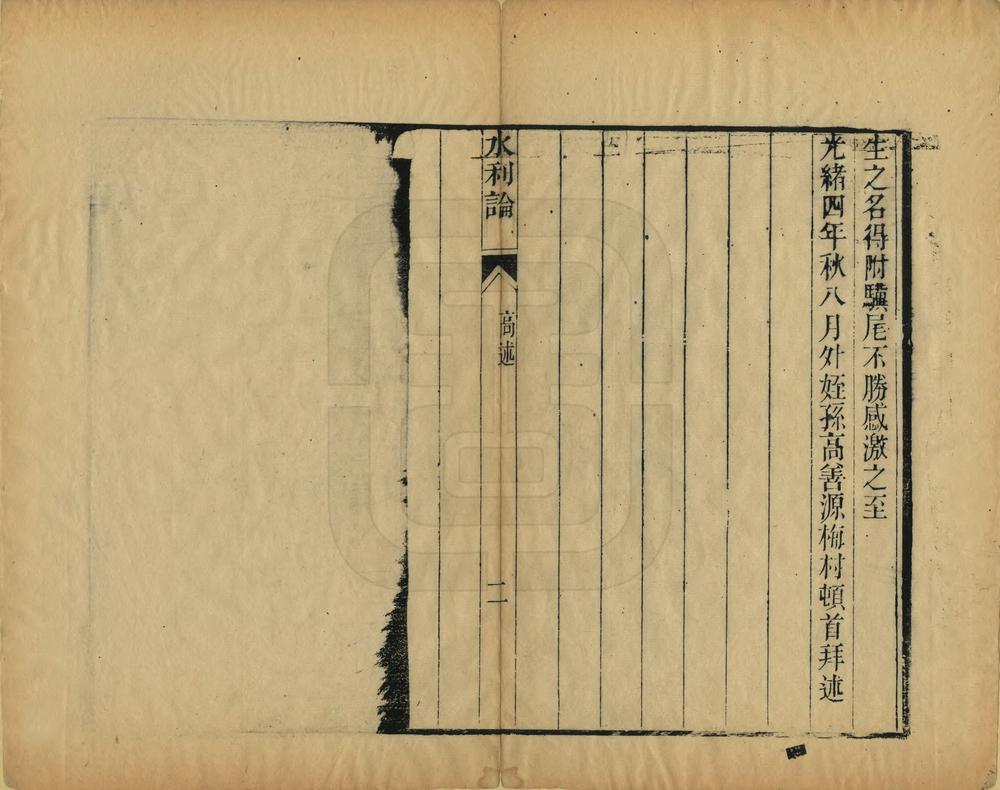 生之名得附驥尾不勝感激之至
光緒四年秋八月外姪孫高善源梅村頓首拜述
水利論
高述
二